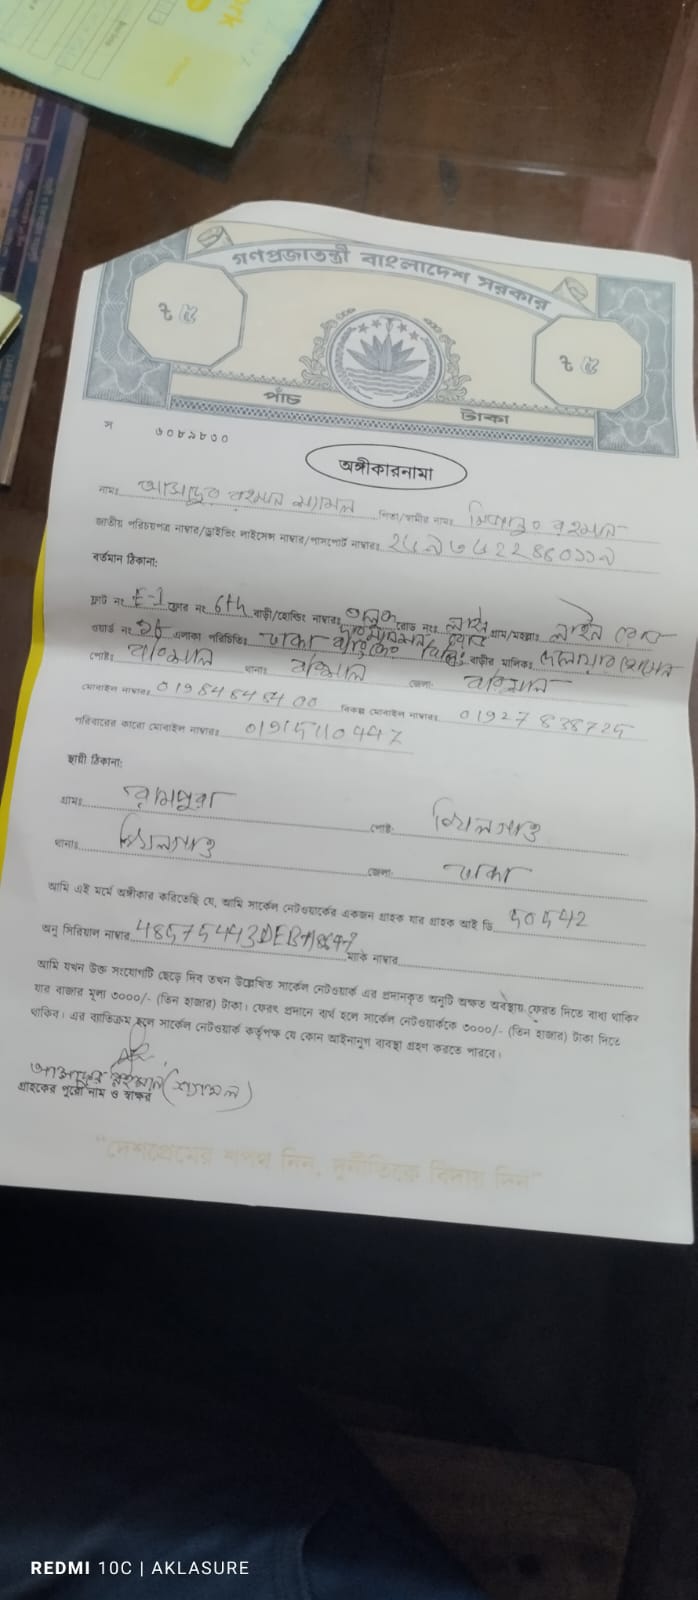 গণপ্রজাতন্ত্রী বাংলাদেশ সরকার
৳ ৫ ৳ ৫
পাঁচ টাকা
স ৬০৮৯৮৩০
অঙ্গীকারনামা
নামঃ আসাদুর রহমান শ্যামল পিতা/স্বামীর নামঃ মিজানুর রহমান
জাতীয় পরিচয়পত্র নাম্বার/ড্রাইভিং লাইসেন্স নাম্বার/পাসপোর্ট নাম্বারঃ
বর্তমান ঠিকানা:
ফ্লাট নং E-1 ফ্লোর নং 6th বাড়ী/হোল্ডিং নাম্বারঃ রোড নংঃ লাইন গ্রাম/মহল্লাঃ লাইন রোড
ওয়ার্ড নং এলাকা পরিচিতিঃ ঢাকা ব্যাংকের বিল্ডিং বাড়ীর মালিকঃ দেলোয়ার হোসেন
পোষ্টঃ বরিশাল থানাঃ বরিশাল জেলা: বরিশাল
মোবাইল নাম্বারঃ বিকল্প মোবাইল নাম্বারঃ 01927838725
পরিবারের কারো মোবাইল নাম্বারঃ
স্থায়ী ঠিকানা:
গ্রামঃ রামপুরা পোষ্ট: খিলগাও
থানাঃ খিলগাও জেলা: ঢাকা
আমি এই মর্মে অঙ্গীকার করিতেছি যে, আমি সার্কেল নেটওয়ার্কের একজন গ্রাহক যার গ্রাহক আই ডি 50542
অনু সিরিয়াল নাম্বার ম্যাক নাম্বার
আমি যখন উক্ত সংযোগটি ছেড়ে দিব তখন উল্লেখিত সার্কেল নেটওয়ার্ক এর প্রদানকৃত অনুটি অক্ষত অবস্থায় ফেরত দিতে বাধ্য থাকিব
যার বাজার মূল্য ৩০০০/- (তিন হাজার) টাকা। ফেরৎ প্রদানে ব্যর্থ হলে সার্কেল নেটওয়ার্ককে ৩০০০/- (তিন হাজার) টাকা দিতে
থাকিব। এর ব্যতিক্রম হলে সার্কেল নেটওয়ার্ক কর্তৃপক্ষ যে কোন আইনানুগ ব্যবস্থা গ্রহণ করতে পারবে।
আসাদুর রহমান (শ্যামল)
গ্রাহকের পুরো নাম ও স্বাক্ষর
"দেশপ্রেমের শপথ নিন, দুর্নীতিকে বিদায় দিন"
REDMI 10C | AKLASURE